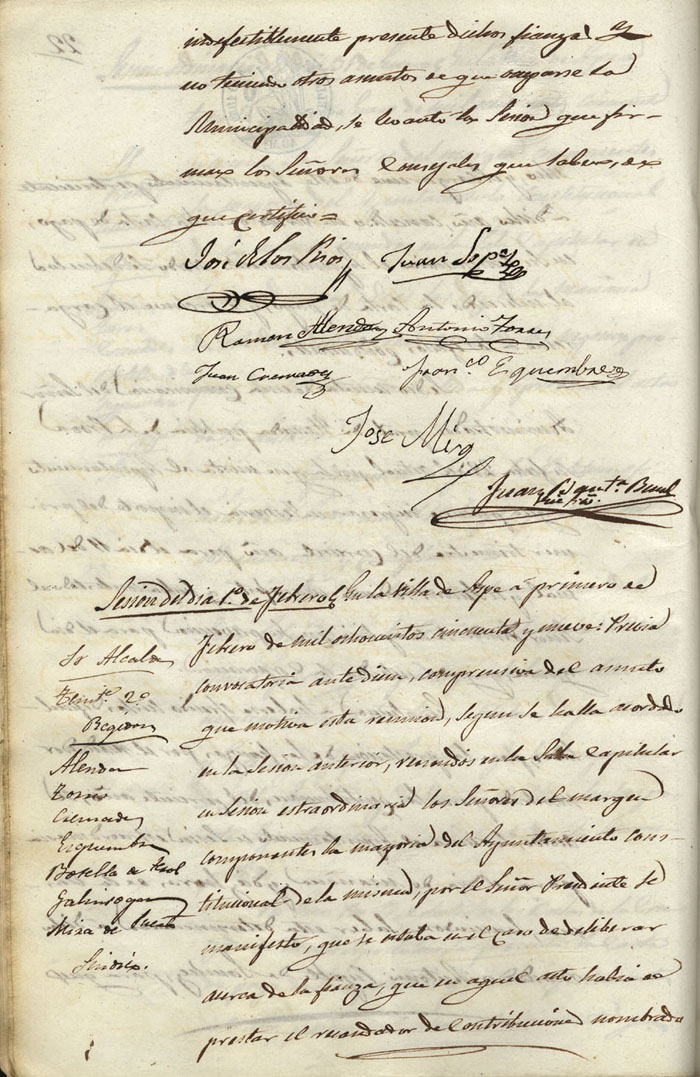 presente dichas fianza y
no teniendo otros asuntos de que ocuparse la
Municipalidad, se levanto la Sesion que fir-
man los Señores Consejales que saben, de
que certifico=
José de los Rios Juan Lopez
Ramon Alenda Antonio Torres
Juan Cremades Fran.co Esquembre
Jose Mira
Juan Bta.
Sesion del dia 1.º de Febrero En la Villa de Aspe a primero de
Febrero de mil ochocientos cincuenta y nueve: Previa
convocatoria antediem, comprensiva del asunto
que motiva esta reunion, segun se halla acordado
en la Sesion anterior, reunidos en la Sala Capitular
en Sesion estraordinaria los Señores del margen
componentes la mayoria del Ayuntamiento cons-
titucional de la misma, por el Señor Presidente se
manifesto, que se estaba en el caso de deliberar
acerca de la fianza, que en aquel acto habia de
prestar el recaudador de Contribuciones nombrado
Sr Alcalde
Tente. 2º
Regidores
Alenda
Torres
Cremades
Esquembre
Botella de
Galinsoga
Mira de
Sindico.